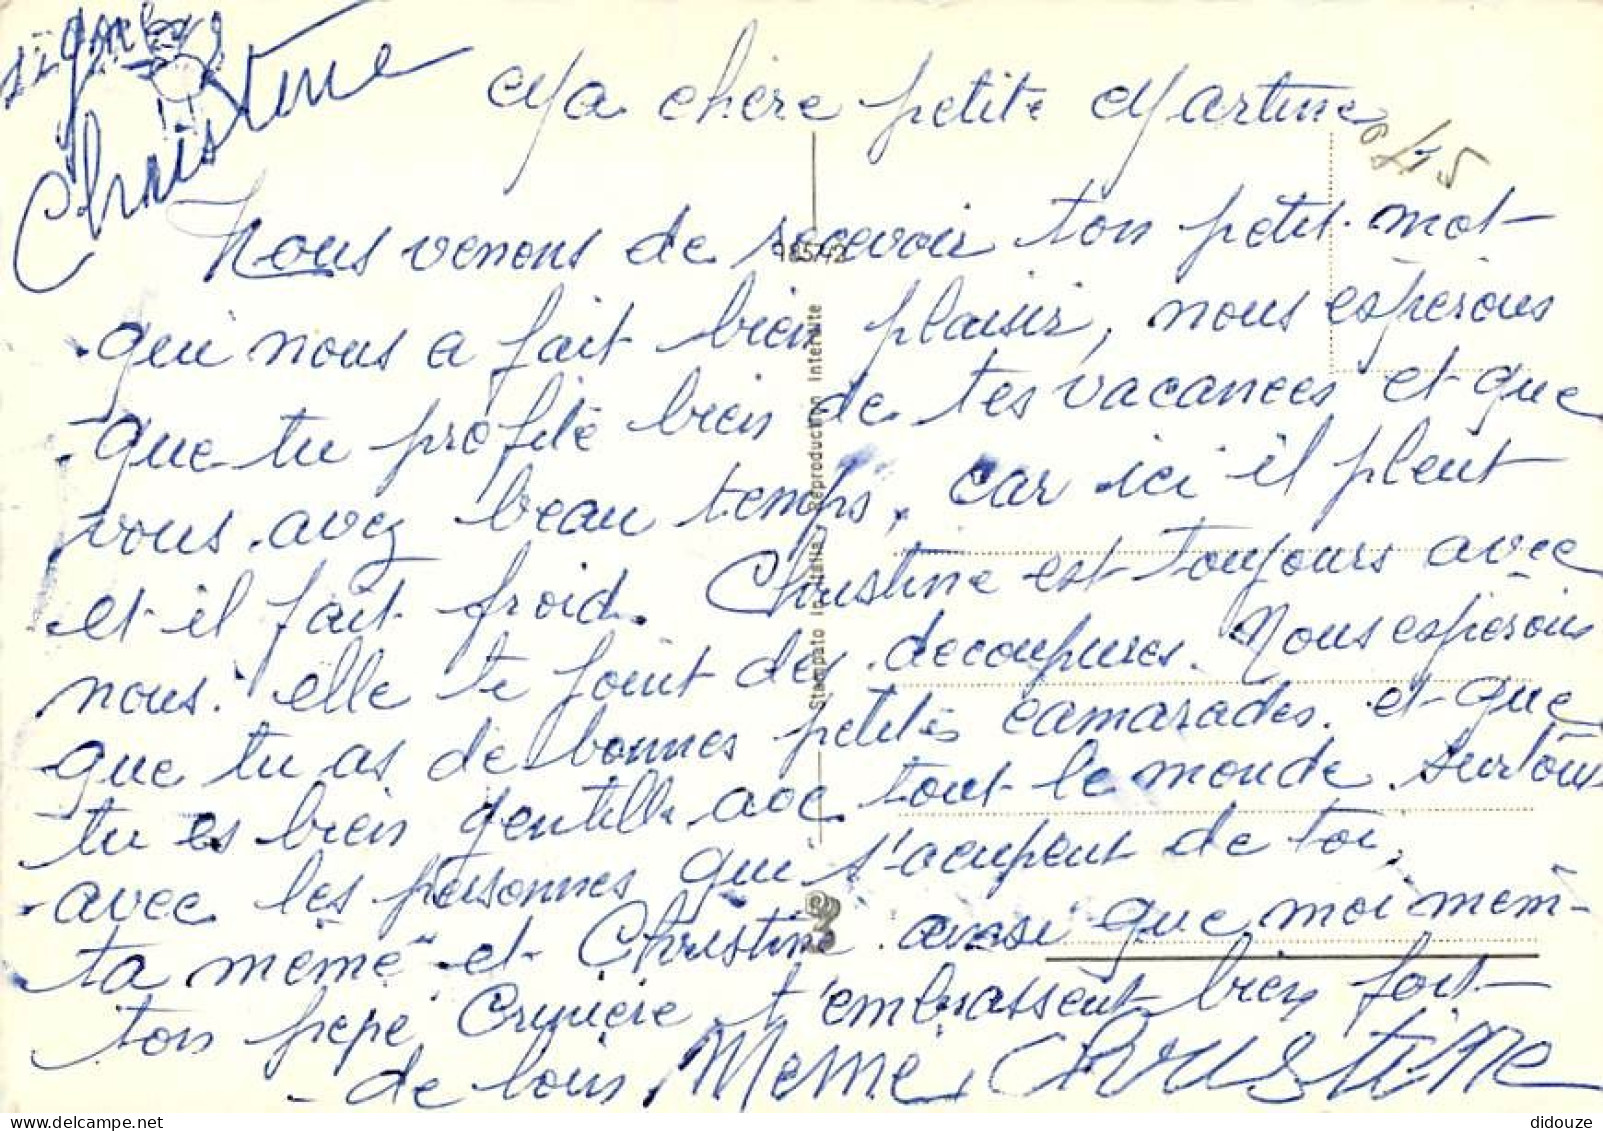 signé
Christine
Ma chère petite Martine
0,45
Nous venons de recevoir ton petit mot
qui nous a fait bien plaisir, nous espérons
que tu profite bien de tes vacances et que
vous avez beau temps, car ici il pleut
et il fait froid. Christine est toujours avec
nous. elle te joint des decoupures. Nous esperons
que tu as de bonnes petites camarades. et que
tu es bien gentille avec tout le monde. surtous
avec les personnes qui s'acupent de toi,
ta mémé et Christine ainsi que moi mem-
ton pépé t'embrassent bien fort
de loin, Mémé Christine
185/42
Stampato in Italia / Reproduction Interdite
3
didouze